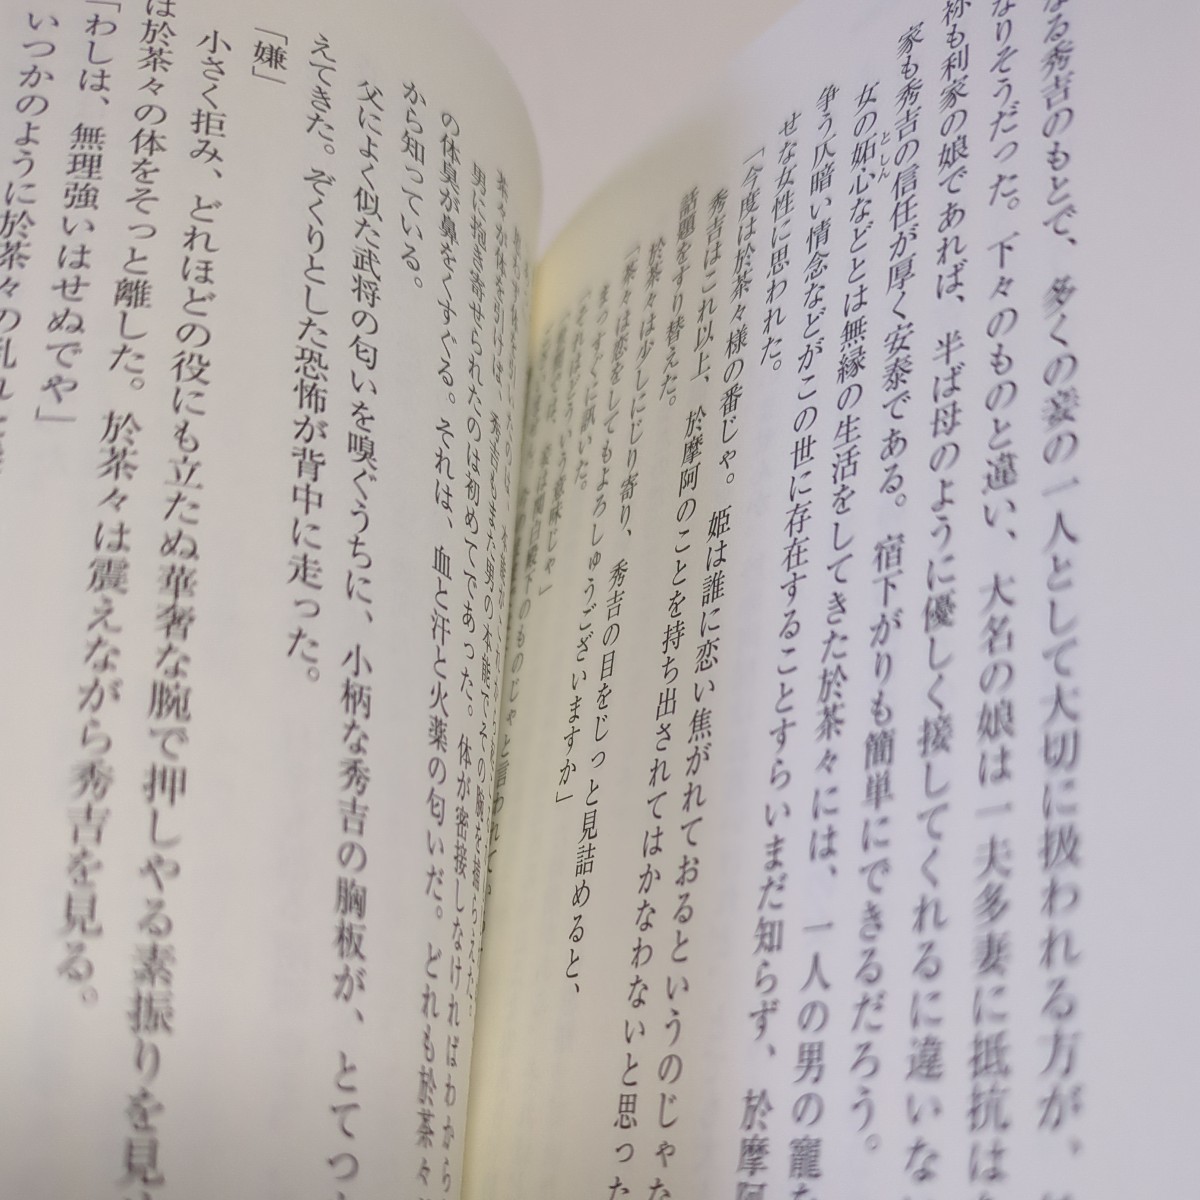 なる秀吉のもとで、多くの妾の一人として大切に扱われる方が、
なりそうだった。下々のものと違い、大名の娘は一夫多妻に抵抗は
祢も利家の娘であれば、半ば母のように優しく接してくれるに違いな
家も秀吉の信任が厚く安泰である。宿下がりも簡単にできるだろう。
女の妬心などとは無縁の生活をしてきた於茶々には、一人の男の寵
としん
争う仄暗い情念などがこの世に存在することすらいまだ知らず、於摩阿
せな女性に思われた。
「今度は於茶々様の番じゃ。姫は誰に恋い焦がれておるというのじゃ
秀吉はこれ以上、於摩阿のことを持ち出されてはかなわないと思った
話題をすり替えた。
於茶々は少しにじり寄り、秀吉の目をじっと見詰めると、
「茶々は恋をしてもよろしゅうございますか」
まっすぐに訊いた。
「それはどういう意味じゃ」
は関白殿下のものじゃと言われて
茶々が体を引けば、秀吉もまた男の本能でその腕を捕らえた。
男に抱き寄せられたのは初めてであった。体が密接しなければわから
の体臭が鼻をくすぐる。それは、血と汗と火薬の匂いだ。どれも於茶々
から知っている。
父によく似た武将の匂いを嗅ぐうちに、小柄な秀吉の胸板が、とてつ
えてきた。ぞくりとした恐怖が背中に走った。
「嫌」
小さく拒み、どれほどの役にも立たぬ華奢な腕で押しやる素振りを見
は於茶々の体をそっと離した。於茶々は震えながら秀吉を見る。
「わしは、無理強いはせぬでや」
いつかのように於茶々の乱れた